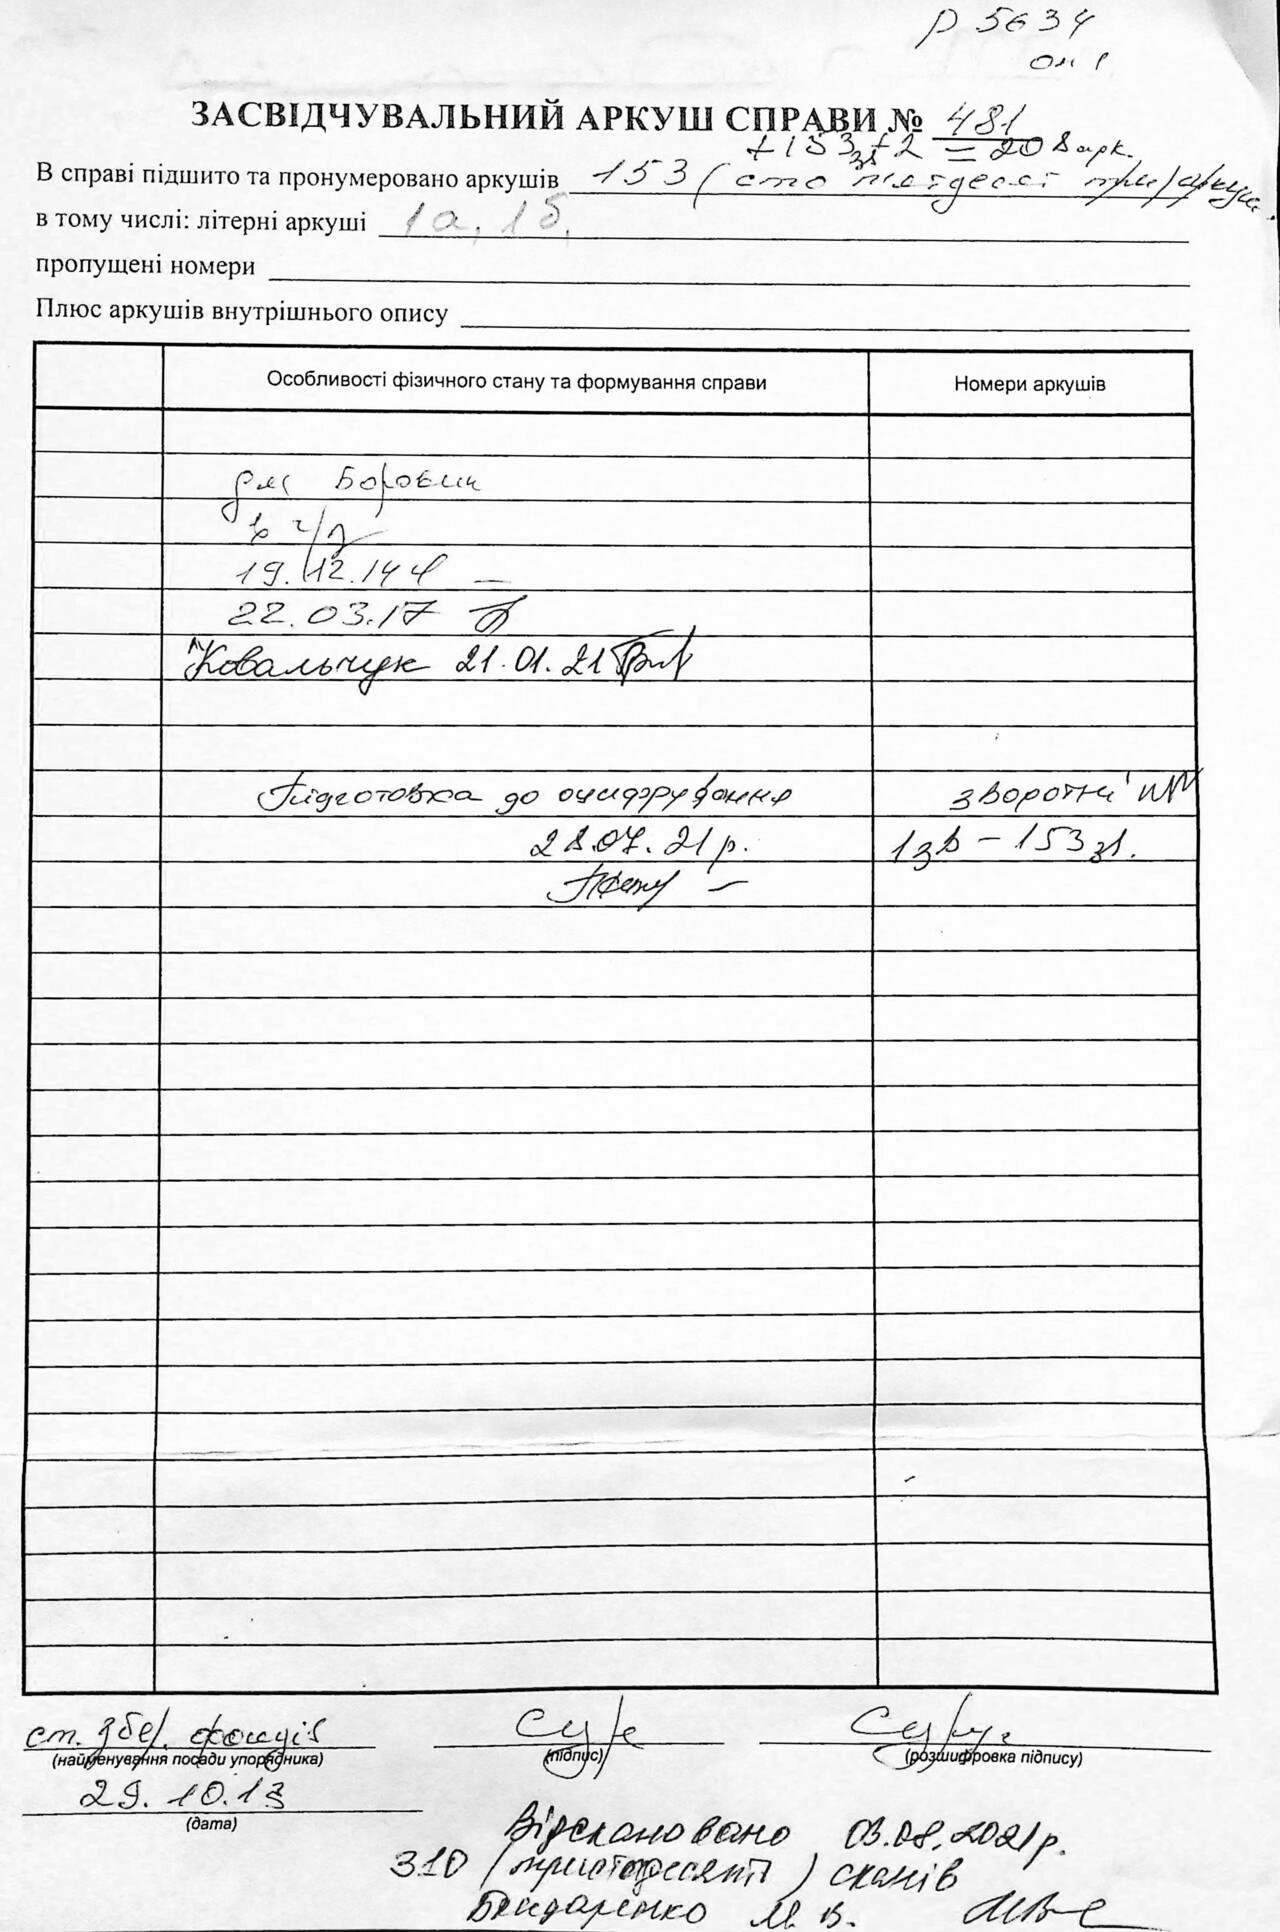 Р 5634
оп 1
ЗАСВІДЧУВАЛЬНИЙ АРКУШ СПРАВИ № 481
+153зв+2 = 308 арк.
В справі підшито та пронумеровано аркушів 153 (сто п'ятдесят три) аркуш.
в тому числі: літерні аркуші 1а, 1б,
пропущені номери
Плюс аркушів внутрішнього опису
Особливості фізичного стану та формування справи Номери аркушів
для
в ч/з
19.12.14
22.03.17
Ковальчук 21.01.21
Підготовка до оцифрування зворотні
28.07.21 р. 1зв – 153зв.
ст. збер. фондів
(найменування посади упорядника) (підпис) (розшифровка підпису)
29.10.13
(дата)
Відскановано 03.08.2021р.
310 (тристодесять) сканів
Бондаренко М. В.